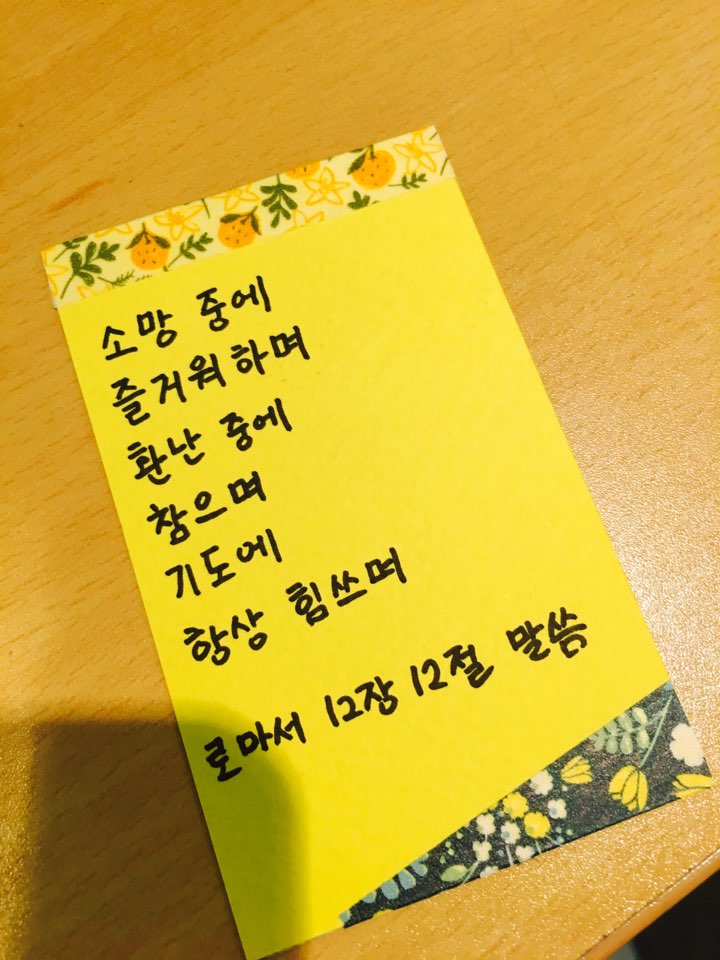 소망 중에
즐거워하며
환난 중에
참으며
기도에
항상 힘쓰며
로마서 12장 12절 말씀